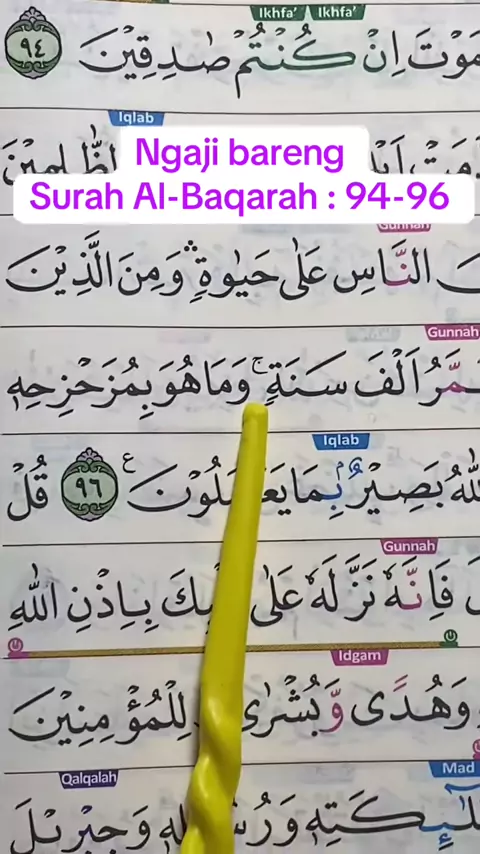 Ikhfa' Ikhfa'
مَوْتَ اِنْ كُنْتُمْ صٰدِقِيْنَ ٩٤
Iqlab
Ngaji bareng
Surah Al-Baqarah : 94-96
Gunnah
النَّاسِ عَلٰى حَيٰوةٍ ۛ وَمِنَ الَّذِيْنَ
Gunnah
اَلْفَ سَنَةٍ ۚ وَمَا هُوَ بِمُزَحْزِحِهٖ
Iqlab
بَصِيْرٌۢ بِمَا ٩٦ ࣖ قُلْ
Gunnah
فَاِنَّهٗ نَزَّلَهٗ عَلٰى بِاِذْنِ اللّٰهِ
Idgam
وَهُدًى وَّبُشْرٰى لِلْمُؤْمِنِيْنَ
Qalqalah Mad
وَجِبْرِيْلَ